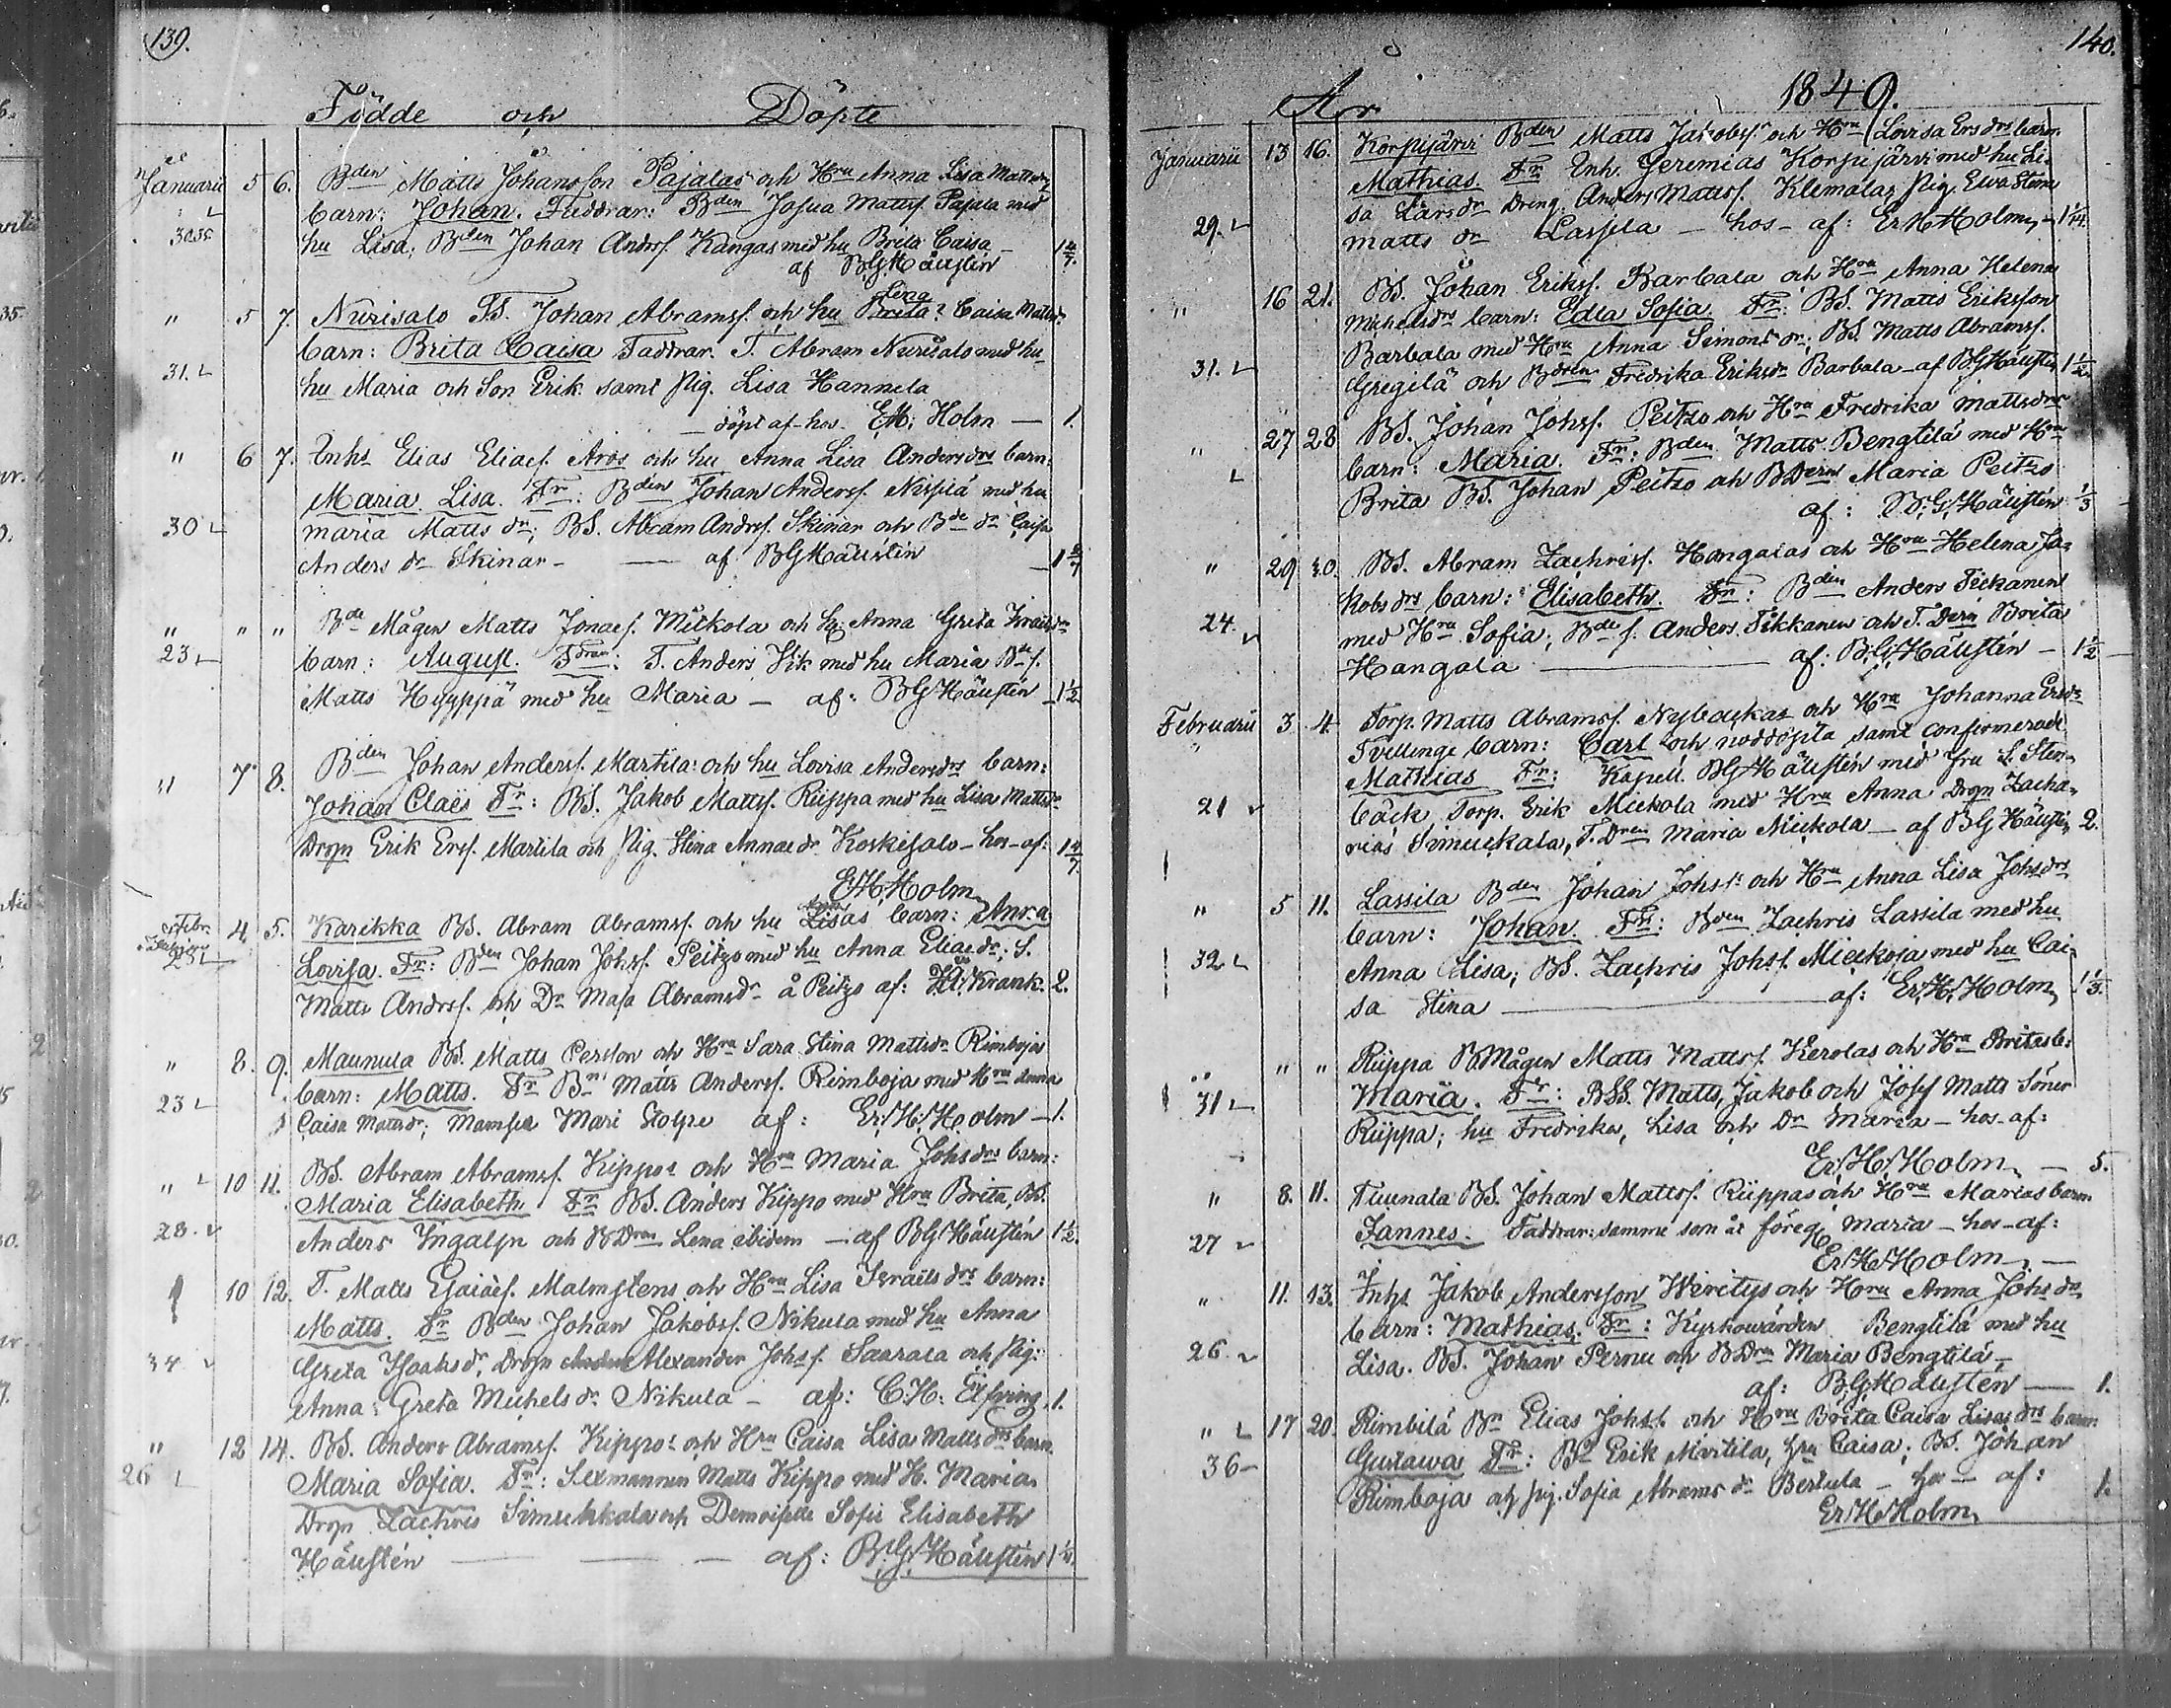 139.
Födde och Döpte
Januarii 5 6. Bden Matts Johansson Pajalas och Hru Anna Lisa Mattsdrs
barn: Johan. Faddrar: Bden Josua Mattss. Pajala med
hu Lisa; Bden Johan Andrss. Kangas med hu Brita Caisa
af BGHällstén
" 5 7. Nurisalo TS. Johan Abramss. och hu Lena Caisa Mattsdr
31. barn: Brita Caisa Faddrar. T. Abram Nurisalo med hu
hu Maria och Son Erik samt Pig. Lisa Hannula
döpt af hos. E.H. Holm 1.
" 6 7. Inhs Elias Eliaes. Aros och hu Anna Lisa Andersdrs barn:
Maria Lisa. Fr: Bden Johan Anderss. Nispilä med hu
30 Maria Matts dr; BS. Abram Andrss. Skinar och Bde dr Caisa
Anders dr Skinar - af BGHällstén
" " " Bde Mågen Matts Jonaes. Mickola och Anna Greta
23 barn: August. Fdrar: T. Anders Vik med hu Maria
Matts Hyyppä med hu Maria - af: BGHällstén 1½
" 7 8. Bden Johan Anderss. Martila och hu Lovisa Andersdrs barn:
Johan Claës Fr: BS. Jakob Mattss. Riippa med hu Lisa Mattsdr
Drgn Erik Erss. Martila och Pig. Stina Annaedr Koskesalo - hos - af:
EHHolm
Febr. 4. 5. Karikka BS. Abram Abramss. och hu Lisas barn: Anna
Lovisa. Fr: Bden Johan Johss. Peitzo med hu Anna Eliaedr; S.
Matts Andrss. och Dr Maja Abramsdr å Peitzo af: Krank. 2.
" 8. 9. Maunula BS. Matts Persson och Hru Sara Stina Mattsdr Rimbojas
23 barn: Matts. Fr Bn Matts Anderss. Rimboja med Hru Anna
Caisa Mattsdr; Mamsel Mari Stolpe af: Er. H. Holm 1.
" 10 11. BS. Abram Abramss. Kippos och Hru Maria Johsdrs barn:
Maria Elisabeth Fr BS. Anders Kippo med Hru Brita, BS.
28. Anders Yngalyn och BDrn Lena ibidem - af BGHällstén 1½.
10 12. T. Matts Malmstens och Hru Lisa Israëls drs barn:
Matts. Fr Bden Johan Jakobss. Nikula med hu Anna
34 Greta Isaaksdr, Drgn Alexander Johss. Saarala och Pig:
Anna Greta Michels dr Nikula - af: C:H: Elfving. 1.
" 12 14. BS. Anders Abramss. Kippos och Hru Caisa Lisa Mattsdrs barn.
26 Maria Sofia. Fr: Sexmannen Matts Kippo med H. Maria
Drgn Zachris Simuhkala och Demoiselle Sofie Elisabeth
Hällstén - af: B.G.Hällstén
140.
År 1849.
Januarii 13 16. Korpijärvi Bden Matts Jakobss. och Hru Lovisa Ersdrs barn.
Mathias Fr Inh. Jeremias Korpijärvi med hu Li-
sa Larsdr Dreng. Anders Mattss. Klemola, Pig. Ewa Stina
29. Matts dr Lassila - hos - af: Er H Holm
" 16 21. BS. Johan Erikss. Barbala och Hru Anna Helena
Michelsdrs barn: Edla Sofia. Fr: BS. Matts Eriksson
Barbala med Hru Anna Simons dr; BS. Matts Abramss.
31. Gregilä och Bdren Fredrika Eriksdr Barbala af BGHällstén 1½
" 27 28 BS. Johan Johss. Peitzo och Hru Fredrika Mattsdrs
barn: Maria. Fr: Bden Matts Bengtilä med Hru
Brita BS. Johan Peitzo och BDren Maria Peitzo
af: B.G.Hällstén
" 29 30. BS. Abram Zachriss. Hangalas och Hru Helena Ja-
kobsdrs barn: Elisabeth. Fr: Bden Anders Tikkanen
24. med Hru Sofia; Bde s. Anders Tikkanen och T. Drn Brita
Hangala af: B.G.Hällstén 1½
Februarii 3 4. Torp. Matts Abramss. Nybackas och Hru Johanna Ersdrs
Tvillinge barn: Carl och nöddöpta samt confirmerade
Mathias Fr: Kapell. BGHällstén med fru L. Sten-
21 bäck Torp. Erik Mickola med Hru Anna Drgn Zacha-
rias Simuckala, T. Drn Maria Mickola - af BGHällstén 2.
" 5 11. Lassila Bden Johan Johss: och Hru Anna Lisa Johsdrs
barn: Johan. Fr: Bden Zachris Lassila med hu
32 Anna Lisa; BS. Zachris Johss. Mickoja med hu Cai-
sa Stina af: Er.H.Holm
" " Riippa BMågen Matts Mattss. Kerolas och Hru Britas b:
31 Maria. Fr: BSS. Matts, Jakob och Josef Matts Söner
Riippa; hu Fredrika, Lisa och Dr Maria - hos - af:
Er.H.Holm 5.
" 8. 11. Tuunala BS. Johan Mattss. Riippas och Hru Marias barn
27 Jannes. Faddrar: samme som åt föreg Maria - hos - af:
Er H Holm
" 11. 13. Inhs Jakob Andersson Wiritys och Hru Anna Johsdrs
barn: Mathias. Fr: Kyrkowärden Bengtilä med hu
26. Lisa. BS. Johan Pernu och BDrn Maria Bengtilä
af: B.G.Hällstén 1.
" 17 20. Rimbilä Bn Elias Johss. och Hru Brita Caisa drs barn
36 Gustawa Fr: Bn Erik Mårtila, hu Caisa; BS. Johan
Rimboja och pig. Sofia Abrams dr Bertula - hos - af: 1.
Er H Holm